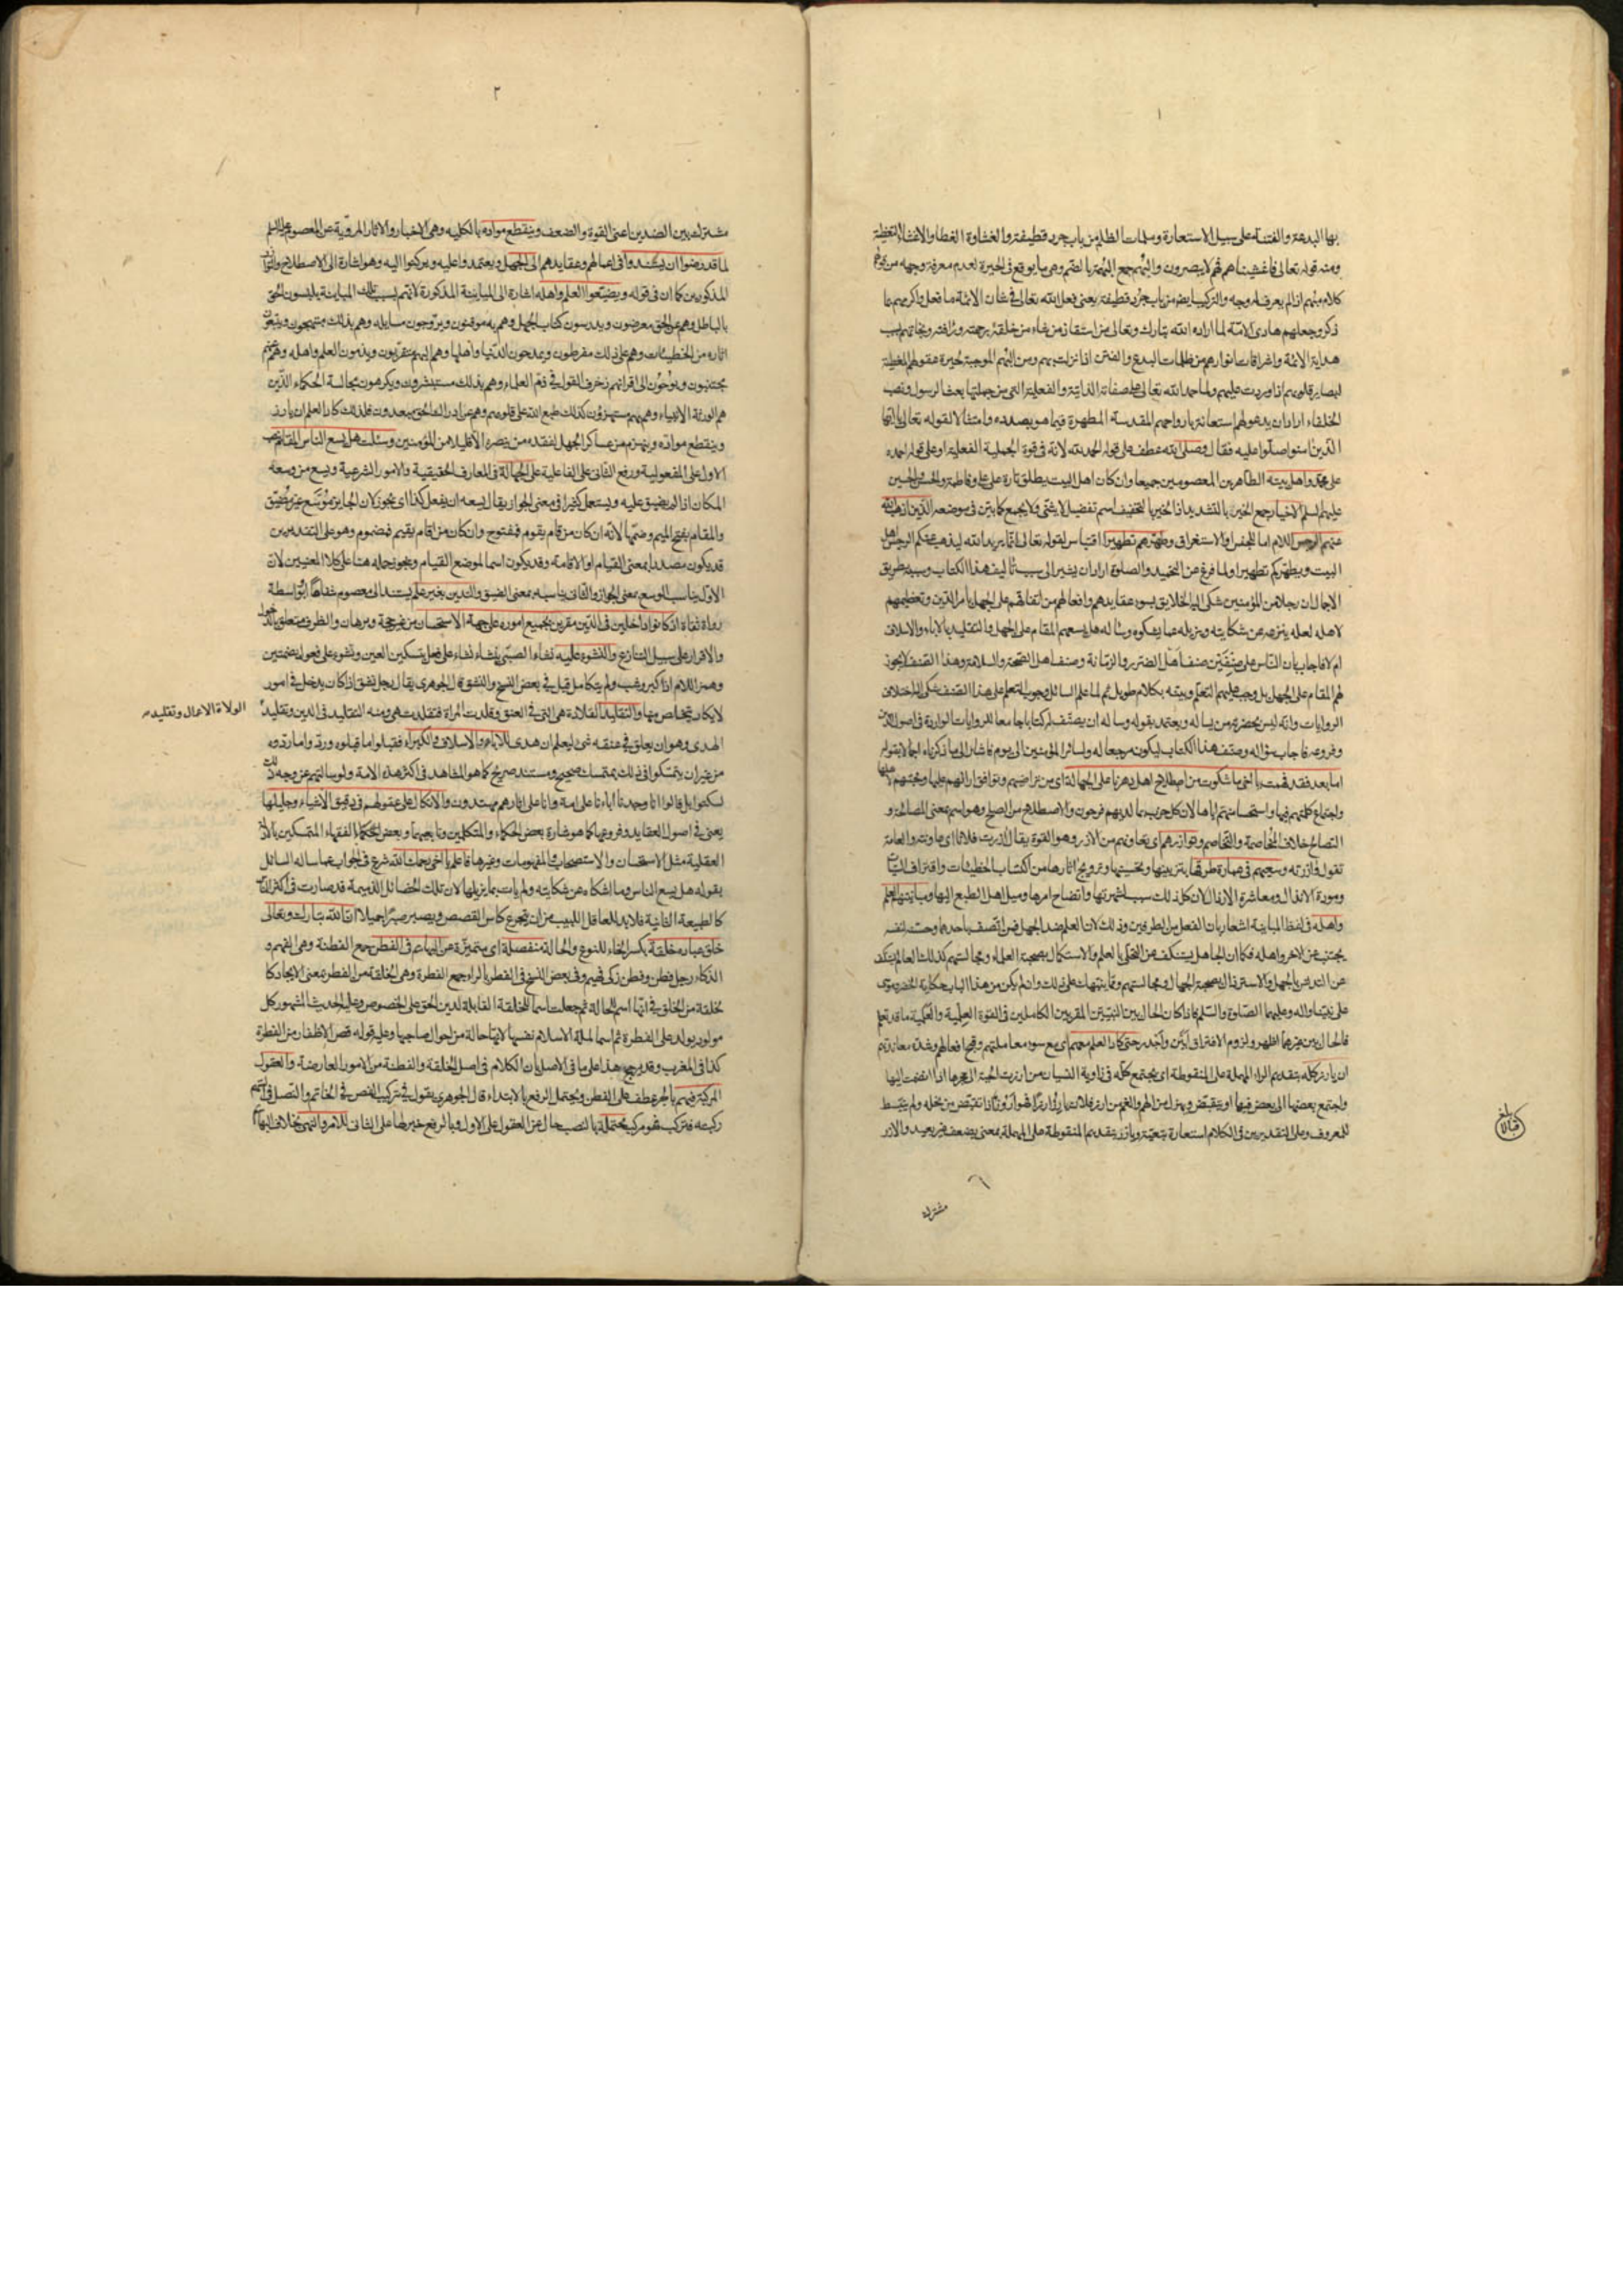 ١
بها البدعة والفتنة على سبيل الاستعارة وسلمات الظلم من باب جرد قطيفة والغشاوة الغطا والاغشاء التغطية
ومنه قوله تعالى فاغشيناهم فهم لا يبصرون والبُهم جمع البُهمة بالضم وهى ما يوقع فى الحيرة لعدم معرفة وجهه من قولهم
كلام مبهم اذا لم يعرف له وجه والتركيب ايضا من باب جرد قطيفة يعنى فعل الله تعالى فى شان الائمة ما فعل واكرمهم بما
ذكر وجعلهم هادى الامة لما اراده الله تبارك وتعالى من استنقاذ من يشاء من خلقه برحمته ورأفته ونجاتهم بسبب
هداية الائمة واشراقات انوارهم من ظلمات البدع والفتن اذا نزلت بهم ومن البُهم الموجبة لحيرة عقولهم المغطية
لبصاير قلوبهم اذا وردت عليهم ولما حمد الله تعالى على صفاته الذاتية والفعلية التى من جملتها بعث الرسول ونصب
الخلفاء اراد ان يدعو لهم استعانة بارواحهم المقدسة المطهرة فيما هو بصدده وامتثالا لقوله تعالى يا ايها
الذين امنوا صلوا عليه فقال وصلى الله عطف على قوله الحمد لله لانه فى قوة الجملة الفعلية او على قوله احمده
على محمد واهل بيته الطاهرين المعصومين جميعا وان كان اهل البيت يطلق تارة على على وفاطمة والحسن والحسين
عليهم السلم الاخيار جمع الخير بالتشديد اذ الخير بالتخفيف اسم تفضيل لا يثنى ولا يجمع كما بيّن فى موضعه الذين اذهب الله
عنهم الرجس اللام اما للجنس او الاستغراق وطهرهم تطهيرا اقتباس لقوله تعالى انما يريد الله ليذهب عنكم الرجس اهل
البيت ويطهركم تطهيرا ولما فرغ عن التحميد والصلوة اراد ان يشير الى سبب تاليف هذا الكتاب وسببه بطريق
الاجمال ان رجلا من المؤمنين شكى اليه الخلايق بسوء عقايدهم وافعالهم من اتفاقهم على الجهل بامر الدين وتعظيمهم
لاهله لعله ينزجر عن شكايته ويزيله عما يشكوه وساله هل يسعهم المقام على الجهل والتقليد بالاباء والاسلاف
ام لا فاجاب بان الناس على صنفين صنف اهل الضرر والزمانة وصنف اهل الصحة والسلامة وهذا الصنف لا يجوز
لهم المقام على الجهل بل وجب عليهم التعلم وبيّنه بكلام طويل ثم لما علم السائل وجوب التعلم على هذا الصنف شكى اليه اختلاف
الروايات وانه ليس بحضرته من يساله ويعتمد بقوله وساله ان يصنف له كتابا جامعا للروايات الواردة فى اصول الدين
وفروعه فاجاب سؤاله وصنف هذا الكتاب ليكون مرجعا له ولسائر المؤمنين الى يوم فاشار الى ما ذكرناه اجمالا بقوله
اما بعد فقد فهمت يا اخى ما شكوت من اصطلاح اهل دهرنا على الجهالة اى من تراضيهم وتوافق ارائهم عليها ومحبتهم لاهلها
واجتماع كلمتهم فيها واستحسانهم اياها لان كل حزب بما لديهم فرحون والاصطلاح من الصلح وهو اسم بمعنى المصالحة و
التصالح خلاف المخاصمة والتخاصم وتوازرهم اى تعاونهم من الازر وهو القوة يقال آزرت فلانا اى عاونته والعامة
تقول وازرته وسعيهم فى عمارة طرقها بتزيينها وتحسينها وترويج اثارها من اكتساب الخطيئات واقتراف السيئات
ومودة الانذال ومعاشرة الارذال لان كل ذلك سبب لشهرتها واتضاح امرها وميل اهل الطبع اليها ومباينتهم العلم
واهله فى لفظ المباينة اشعار بان الفعل من الطرفين وذلك لان العلم ضد الجهل فمن اتصف باحدهما وحسنه لنفسه
يجتنب عن الاخر واهله فكما ان الجاهل يستنكف عن التحلى بالعلم والاستكمال بصحبة العلماء ومجالستهم كذلك العالم يستنكف
عن التدنس بالجهل والاسترذال بصحبة الجهال ومجالستهم وقد ينبهك على ذلك وان لم يكن من هذا الباب حكاية الخضر وموسى
على نبينا واله وعليهما الصلوة والسلم فاذا كان الحال بين النبيين المقربين الكاملين فى القوة العلمية والعملية ما قد تعلم
فالحال بين غيرهما اظهر ولزوم الافتراق ابين واجدر حتى كاد العلم معهم اى مع سوء معاملتهم وقبح افعالهم وشدة معاندتهم
ان يارز كله بتقديم الراء المهملة على المنقوطة اى يجتمع كله فى زاوية النسيان من ارزت الحية الى جحرها اذا انضمت اليها
واجتمع بعضها الى بعض فيها او ينقبض ويهزل من الهم والغم من ارز فلان يارز ارزا فهو ارز وزنا اذا تقبض من بخله ولم ينبسط
للمعروف وعلى التقديرين فى الكلام استعارة بتبعية ويازر بتقديم المنقوطة على المهملة بمعنى يضعف غير بعيد والازر
بلغ قبالا
مشترك
٢
مشترك بين الضدين اعنى القوة والضعف وينقطع مواده بالكلية وهى الاخبار والاثار المروية عن المعصوم عليه السلم
لما قد رضوا ان يستندوا فى اعمالهم وعقايدهم الى الجهل ويعتمدوا عليه ويركنوا اليه وهو اشارة الى الاصطلاح والتوازر
المذكورين كما ان فى قوله ويضيعوا العلم واهله اشارة الى المباينة المذكورة لانهم بسبب تلك المباينة يلبسون الحق
بالباطل وهم عن الحق معرضون ويدرسون كتاب الجهل وهم به موقنون ويروجون مسايله وهم بذلك مبتهجون ويتبعون
اثاره من الخطيئات وهم على ذلك مفرطون ويمدحون الدنيا واهلها وهم اليهم متقربون ويذمون العلم واهله وهم عنهم
مجتنبون ويوحون الى اقرانهم زخرف القول فى ذم العلماء وهم بذلك مستبشرون ويكرهون مجالسة الحكماء الذين
هم الورثة الانبياء وهم بهم مستهزؤن كذلك طبع الله على قلوبهم وهم عن ادراك الحق مبعدون فلذلك كاد العلم ان يارز
وينقطع مواده وينهزم من عساكر الجهل لفقده من ينصره الا قليلا من المؤمنين وسئلت هل يسع الناس المقام بنصب
الاول على المفعولية ورفع الثانى على الفاعلية على الجهالة فى المعارف الحقيقية والامور الشرعية ويسع من وسعه
المكان اذا لم يضيق عليه ويستعمل كثيرا فى معنى الجواز يقال يسعه ان يفعل كذا اى يجوز لان الجايز موسّع غير مضيّق
والمقام بفتح الميم وضمها لانه ان كان من قام يقوم فمفتوح وان كان من اقام يقيم فمضموم وهو على التقديرين
قد يكون مصدرا بمعنى القيام او الاقامة وقد يكون اسما لموضع القيام ويجوز حمله هنا على كلا المعنيين لان
الاول يناسب الوسع بمعنى الجواز والثانى يناسبه بمعنى الضيق والتدين بغير علم يستند الى معصوم شفاها او بواسطة
رواة ثقاة اذ كانوا داخلين فى الدين مقرين بجميع اموره على جهة الاستحسان من غير حجة وبرهان والظرف متعلق بالدخول
والاقرار على سبيل التنازع والنشوء عليه نشاء الصبى ينشاء نشاء على فعل بتسكين العين ونشوء على فعول بضمتين
وهمز اللام اذا كبر وشب ولم يتكامل قيل فى بعض النسخ والنشق قال الجوهرى يقال رجل نشق اذا كان يدخل فى امور
لا يكاد يتخلص منها والتقليد القلادة هى التى فى العنق وقلدت المراة فتقلدت هى ومنه التقليد فى الدين وتقليد
الولاة الاعمال وتقليد
الهدى وهو ان يعلق فى عنقه شئ ليعلم ان هدى للآباء والاسلاف والكبراء فقبلوا ما قبلوه وردوا ما ردوه
من غير ان يتمسكوا فى ذلك بمتمسك صحيح ومستند صريح كما هو المشاهد فى اكثر هذه الامة ولو سالتهم عن وجه ذلك
لسكتوا بل قالوا انا وجدنا اباءنا على امة وانا على اثارهم مهتدون والاتكال على عقولهم فى دقيق الاشياء وجليلها
يعنى فى اصول العقايد وفروعها كما هو شارة بعض الحكماء والمتكلمين وتابعيهما وبعض الفقهاء المتمسكين
العقلية مثل الاستحسان والاستصحاب والمفهومات وغيرها فاعلم يا اخى رحمك الله شرع فى الجواب عما ساله السائل
بقوله هل يسع الناس وما اشكاه عن شكايته ولم يات بما يزيلها لان تلك الخصائل الذميمة قد صارت فى اكثر الناس
كالطبيعة الثانية فلا بد للعاقل اللبيب من ان يتجرع كاس الغصص ويصبر صبرا جميلا ان الله تبارك وتعالى
خلق عباده خلقة بكسر الخاء للنوع والحالة منفصلة اى متميزة عن البهائم فى الفطن جمع الفطنة وهى الفهم و
الذكاء رجل فطن وفطن زكى فهيم وفى بعض النسخ فى الفطر بالراء جمع الفطرة وهى الخلقة من الفطر بمعنى الايجاد كا
لخلقة من الخلق فى انها اسم للحالة ثم جعلت اسما للخلقة القابلة لدين الحق على الخصوص وعليه الحديث المشهور كل
مولود يولد على الفطرة ثم اسما لملة الاسلام نفسها لانها حالة من احوال صاحبها وعليه قوله قص الاظفار من الفطرة
كذا فى المغرب وقد يرجح هذا على ما فى الاصل بان الكلام فى اصل الخلقة والفطنة من الامور العارضة والعقول
المركبة فيهم بالجر عطف على الفطن ويحتمل الرفع بالابتداء قال الجوهرى يقول فى تركيب الفص فى الخاتم والنصل فى السهم
ركبته فتركب فهو مركب محتملة بالنصب حال عن العقول على الاول وبالرفع خبر لها على الثانى للامر والنهى بخلاف البهائم